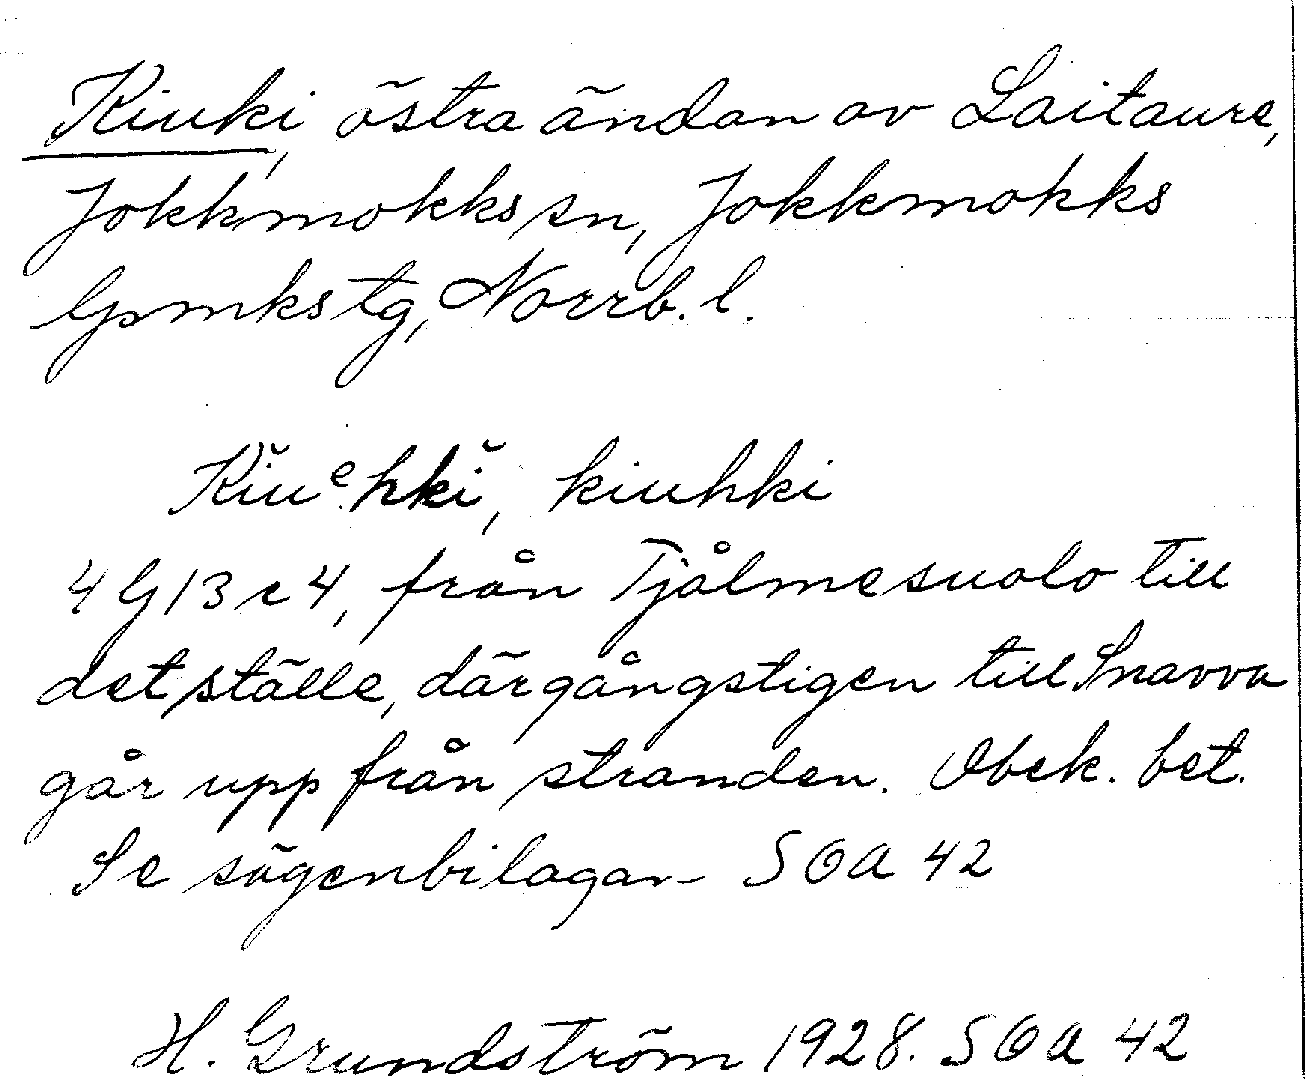 Kiuki, östra ändan av Laitaure,
Jokkmokks sn, Jokkmokks
lpmks tg, Norrb. l.
Kĭuᵉhkĭ, kiuhki
4 G 13 c 4, från Tjålmesuolo till
det ställe, där gångstigen till Snavva
går upp från stranden. Obek. bet.
Se sägenbilagan SOA 42
H. Grundström 1928. SOA 42